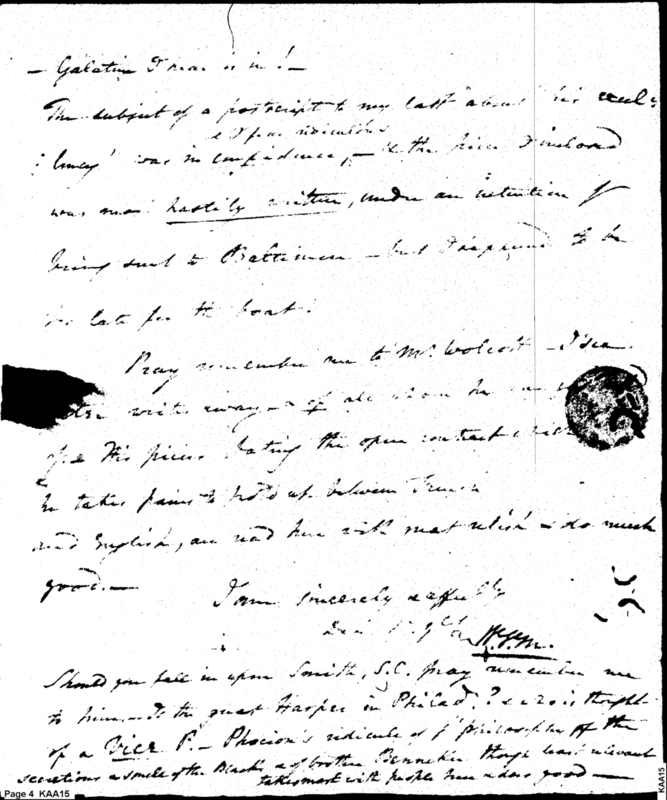 — Galatin I hear is in! —
The subject of a postscript to my last about his
& I fear ridiculous
was in confidence, — & the piece I inclosed
was most hastily written, under an intention of
being sent to Baltimore — but I happened to be
too late for the boat.
Pray remember me to Mr. Wolcott — I see
writes away — of all whom he
His pieces bating the open contract
he takes pains to hold up between French
and English, are read here with great relish & do much
good. —
I am sincerely & affectly
W.V.M.
Should you fall in upon Smith, S.C. pray remember me
to him. — Is the great Harper in Philad.? & is thought
of a Vice P. — Phocion's ridicule of ye philosopher off the
secretions & smile of the Blacks & of brother Benneker though least relevant
takes most with people here & does good —
Page 4 KAA15
KAA15